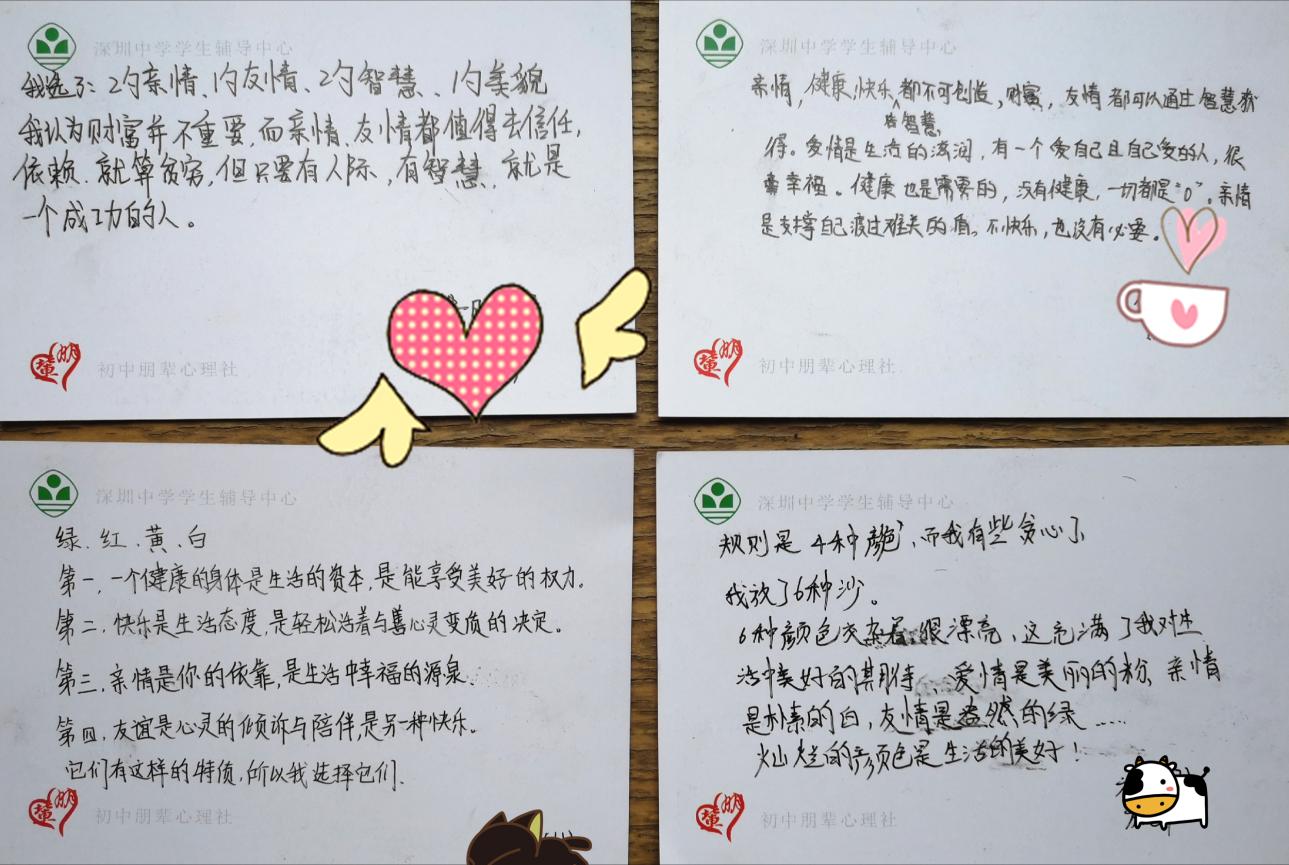 深圳中学学生辅导中心
我选了：2勺亲情、1勺友情、2勺智慧、1勺美貌
我认为财富并不重要,而亲情、友情都值得去信任,
依赖.就算贫穷,但只要有人际,有智慧,就是
一个成功的人。
初中朋辈心理社
深圳中学学生辅导中心
亲情,健康,快乐都不可创造,财富,友情都可以通过智慧获
有智慧,
得。爱情是生活的滋润,有一个爱自己且自己爱的人,很
幸福。健康也是需要的,没有健康,一切都是"0"。亲情
是支撑自己渡过难关的盾。不快乐,也没有必要。
初中朋辈心理社
深圳中学学生辅导中心
绿、红、黄、白
第一,一个健康的身体是生活的资本,是能享受美好的权力。
第二,快乐是生活态度,是轻松活着与善心灵变质的决定。
第三,亲情是你的依靠,是生活中幸福的源泉.
第四,友谊是心灵的倾诉与陪伴,是另一种快乐。
它们有这样的特质,所以我选择它们.
初中朋辈心理社
深圳中学学生辅导中心
规则是4种颜色,而我有些贪心了,
我放了6种沙。
6种颜色夹杂着很漂亮,这充满了我对生
活中美好的期待 爱情是美丽的粉,亲情
是朴素的白,友情是盎然的绿……
灿烂的颜色是生活的美好!
初中朋辈心理社